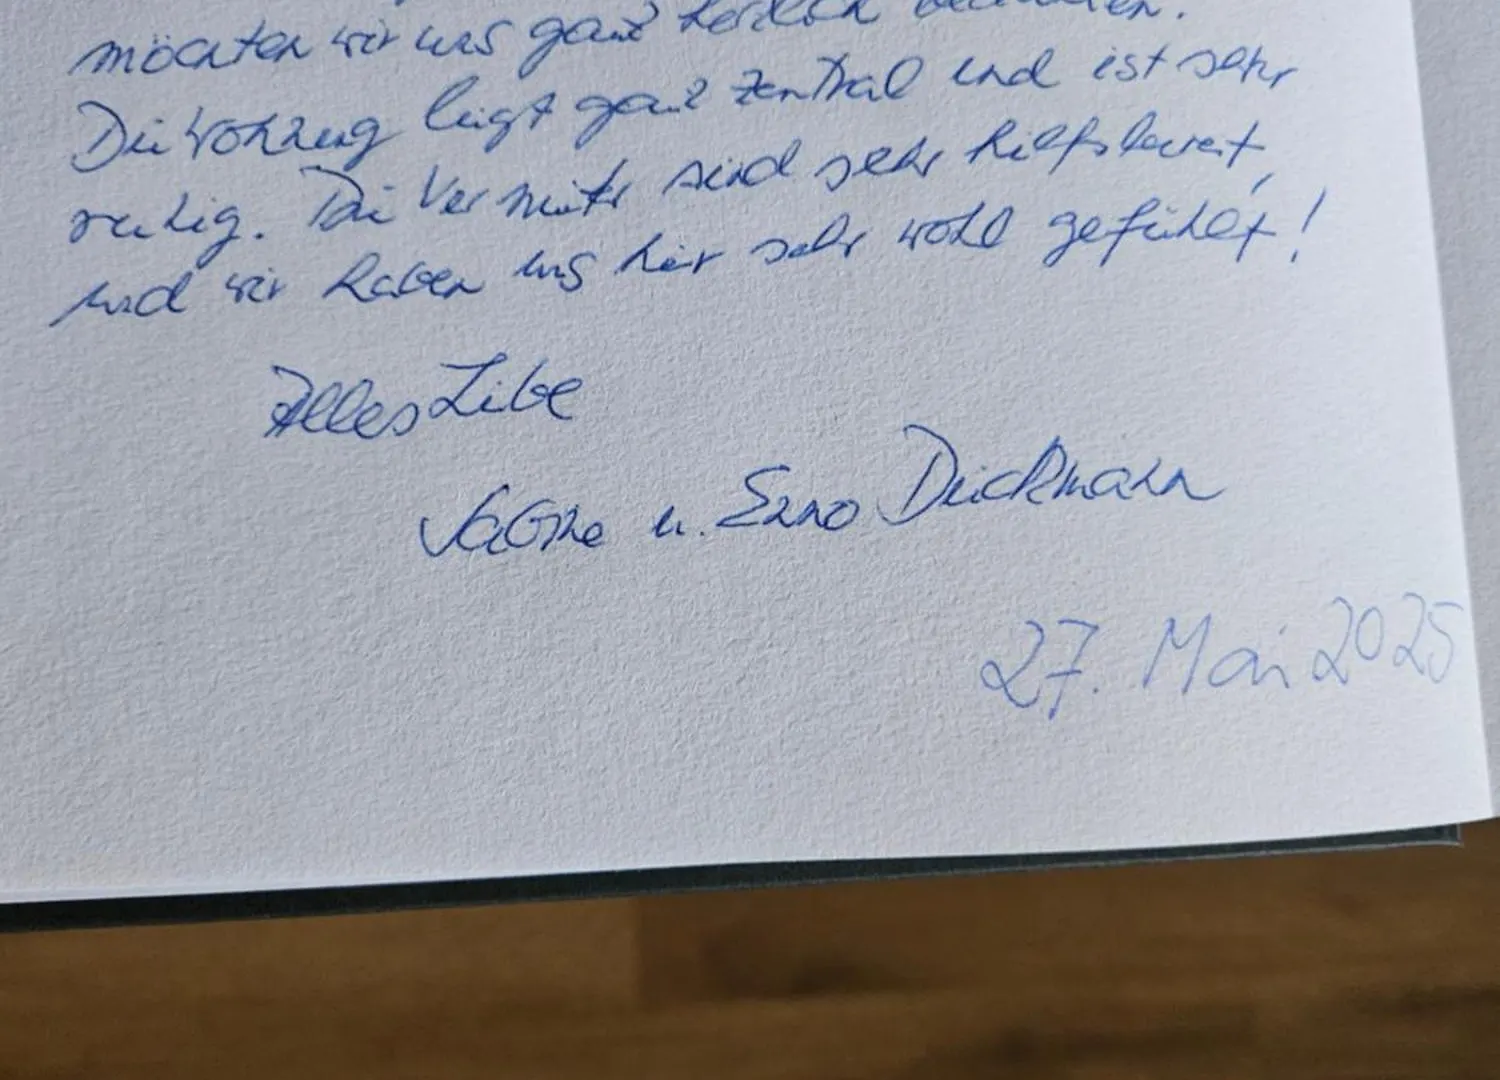 möchten wir uns ganz herzlich bedanken.
Die Wohnung liegt ganz zentral und ist sehr
ruhig. Die Vermieter sind sehr hilfsbereit,
und wir haben uns hier sehr wohl gefühlt!
Alles Liebe
Sabine u. Enno Dieckmann
27. Mai 2025